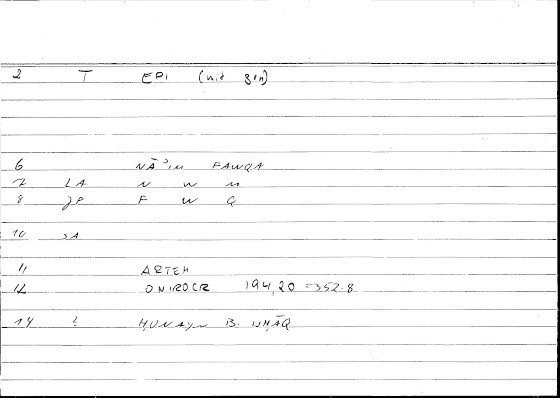 2 T EPI (mit gen)
6 NĀʾIM FAWQA
7 LA N W M
8 JP F W Q
10 SA
11 ARTEM
12 ONIROCR 194,20 = 352.8
14 ? ḤUNAYN B. ISḤĀQ